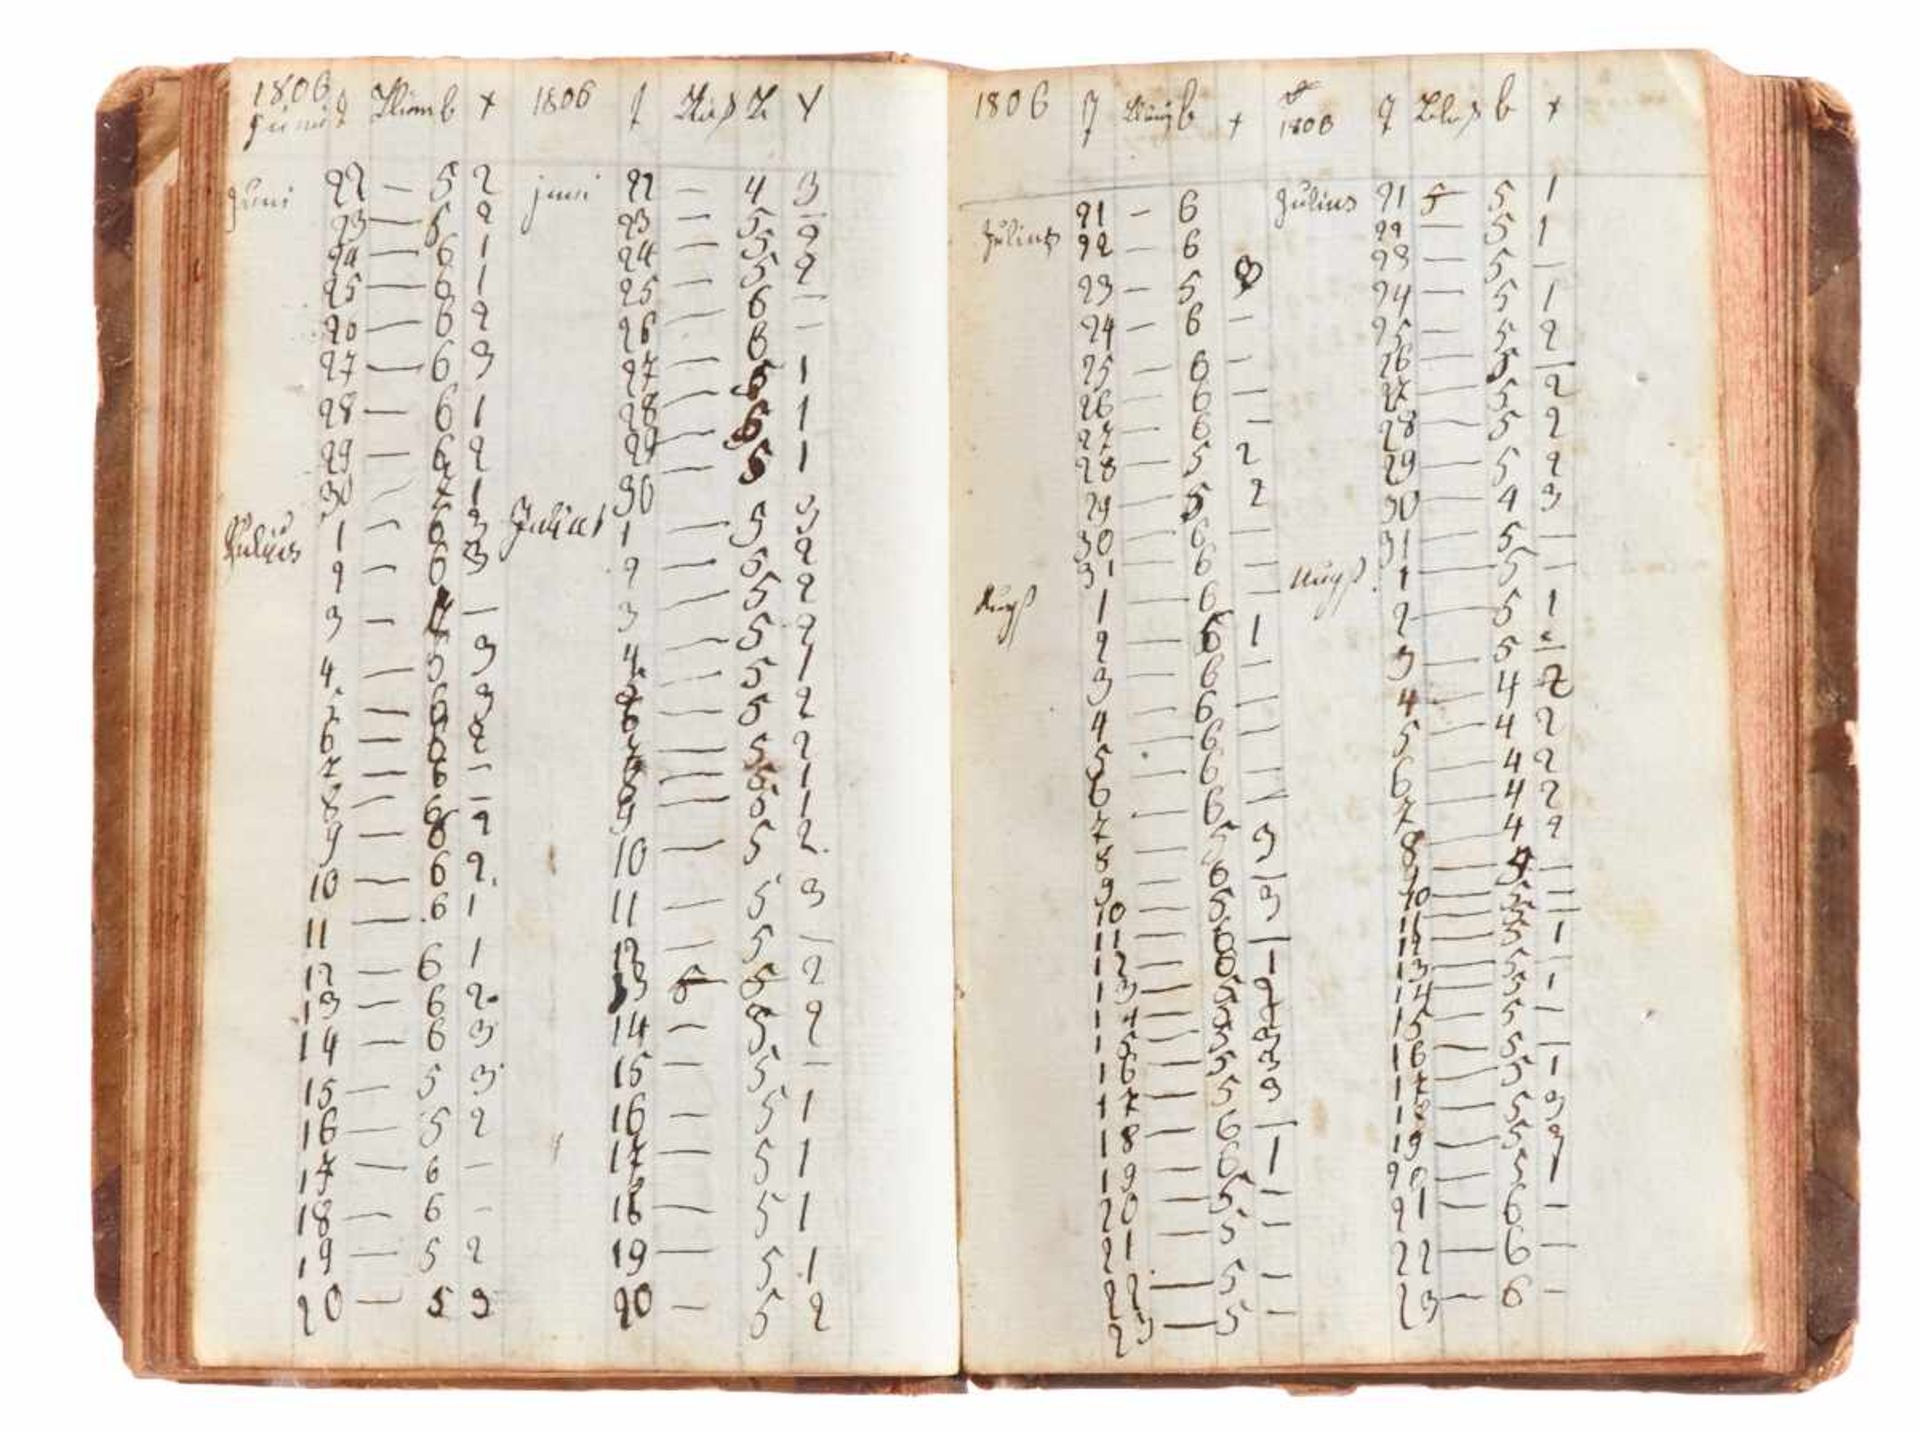 1806
Juni
b +
Juni 22 — 5 2
23 — 5 2
24 — 6 1
25 — 6 1
26 — 6 2
27 — 6 3
28 — 6 1
29 — 6 2
30 — 7 1
Julius 1 — 6 3
2 — 6 3
3 — —
4 — 5 3
5 — 6 3
6 — 6 2
7 — 6 —
8 — 6 —
9 — 8 2
10 — 6 2
11 — 6 1
12 — 6 1
13 — 6 2
14 — 6 3
15 — 5 3
16 — 5 2
17 — 6 —
18 — 6 —
19 — 5 2
20 — 5 3
1806
juni 22 — 4 3
23 — 5 —
24 — 5 2
25 — 5 2
26 — 6 —
27 — 6 —
28 — 5 1
29 — 6 1
30 — 5 1
Julius 1 — 5 3
2 — 5 2
3 — 5 2
4 — 5 2
5 — 5 1
6 — 5 2
7 — 5 2
8 — 6 1
9 — 6 1
10 — 5 2
11 — 5 3
12 — 5 —
13 5 5 2
14 — 5 2
15 — 5 —
16 — 5 1
17 — 5 1
18 — 5 1
19 — 5 1
20 — 5 2
1806 b +
21 — 6
Julius 22 — 6
23 — 5 3
24 — 6 —
25 — 6 —
26 — 6 —
27 — 6 —
28 — 5 2
29 — 5 2
30 — 6 —
31 — 6
Augs 1 — 6 —
2 — 6 1
3 — 6 —
4 — 6 —
5 — 6 —
6 — 6 —
7 — 6 —
8 — 5 3
9 — 6 —
10 — 5 3
11 — 6 —
12 — 6 1
13 — 5 2
14 — 5
15 — 5 3
16 — 5 3
17 — 5 3
18 — 6 —
19 — 6 1
20 — 5 —
21 — 5 —
22 — 5 —
23 — 5 —
1806 b +
Julius 21 5 5 1
22 — 5 1
23 — 5 —
24 — 5 1
25 — 5 2
26 — 5 —
27 — 5 2
28 — 5 2
29 — 5 2
30 — 4 3
31 — 5 —
Augs 1 — 5 —
2 — 5 1
3 — 5 —
4 — 4 2
5 — 4 2
6 — 4 2
7 — 4 2
8 — 4 2
9 — —
10 — 5 —
11 — 5 —
12 — 5 1
13 — 5 —
14 — 5 1
15 — 5 —
16 — 5 —
17 — 5 1
18 — 5 3
19 — 5 2
20 — 5 1
21 — 6 —
22 — 6 —
23 — 6 —